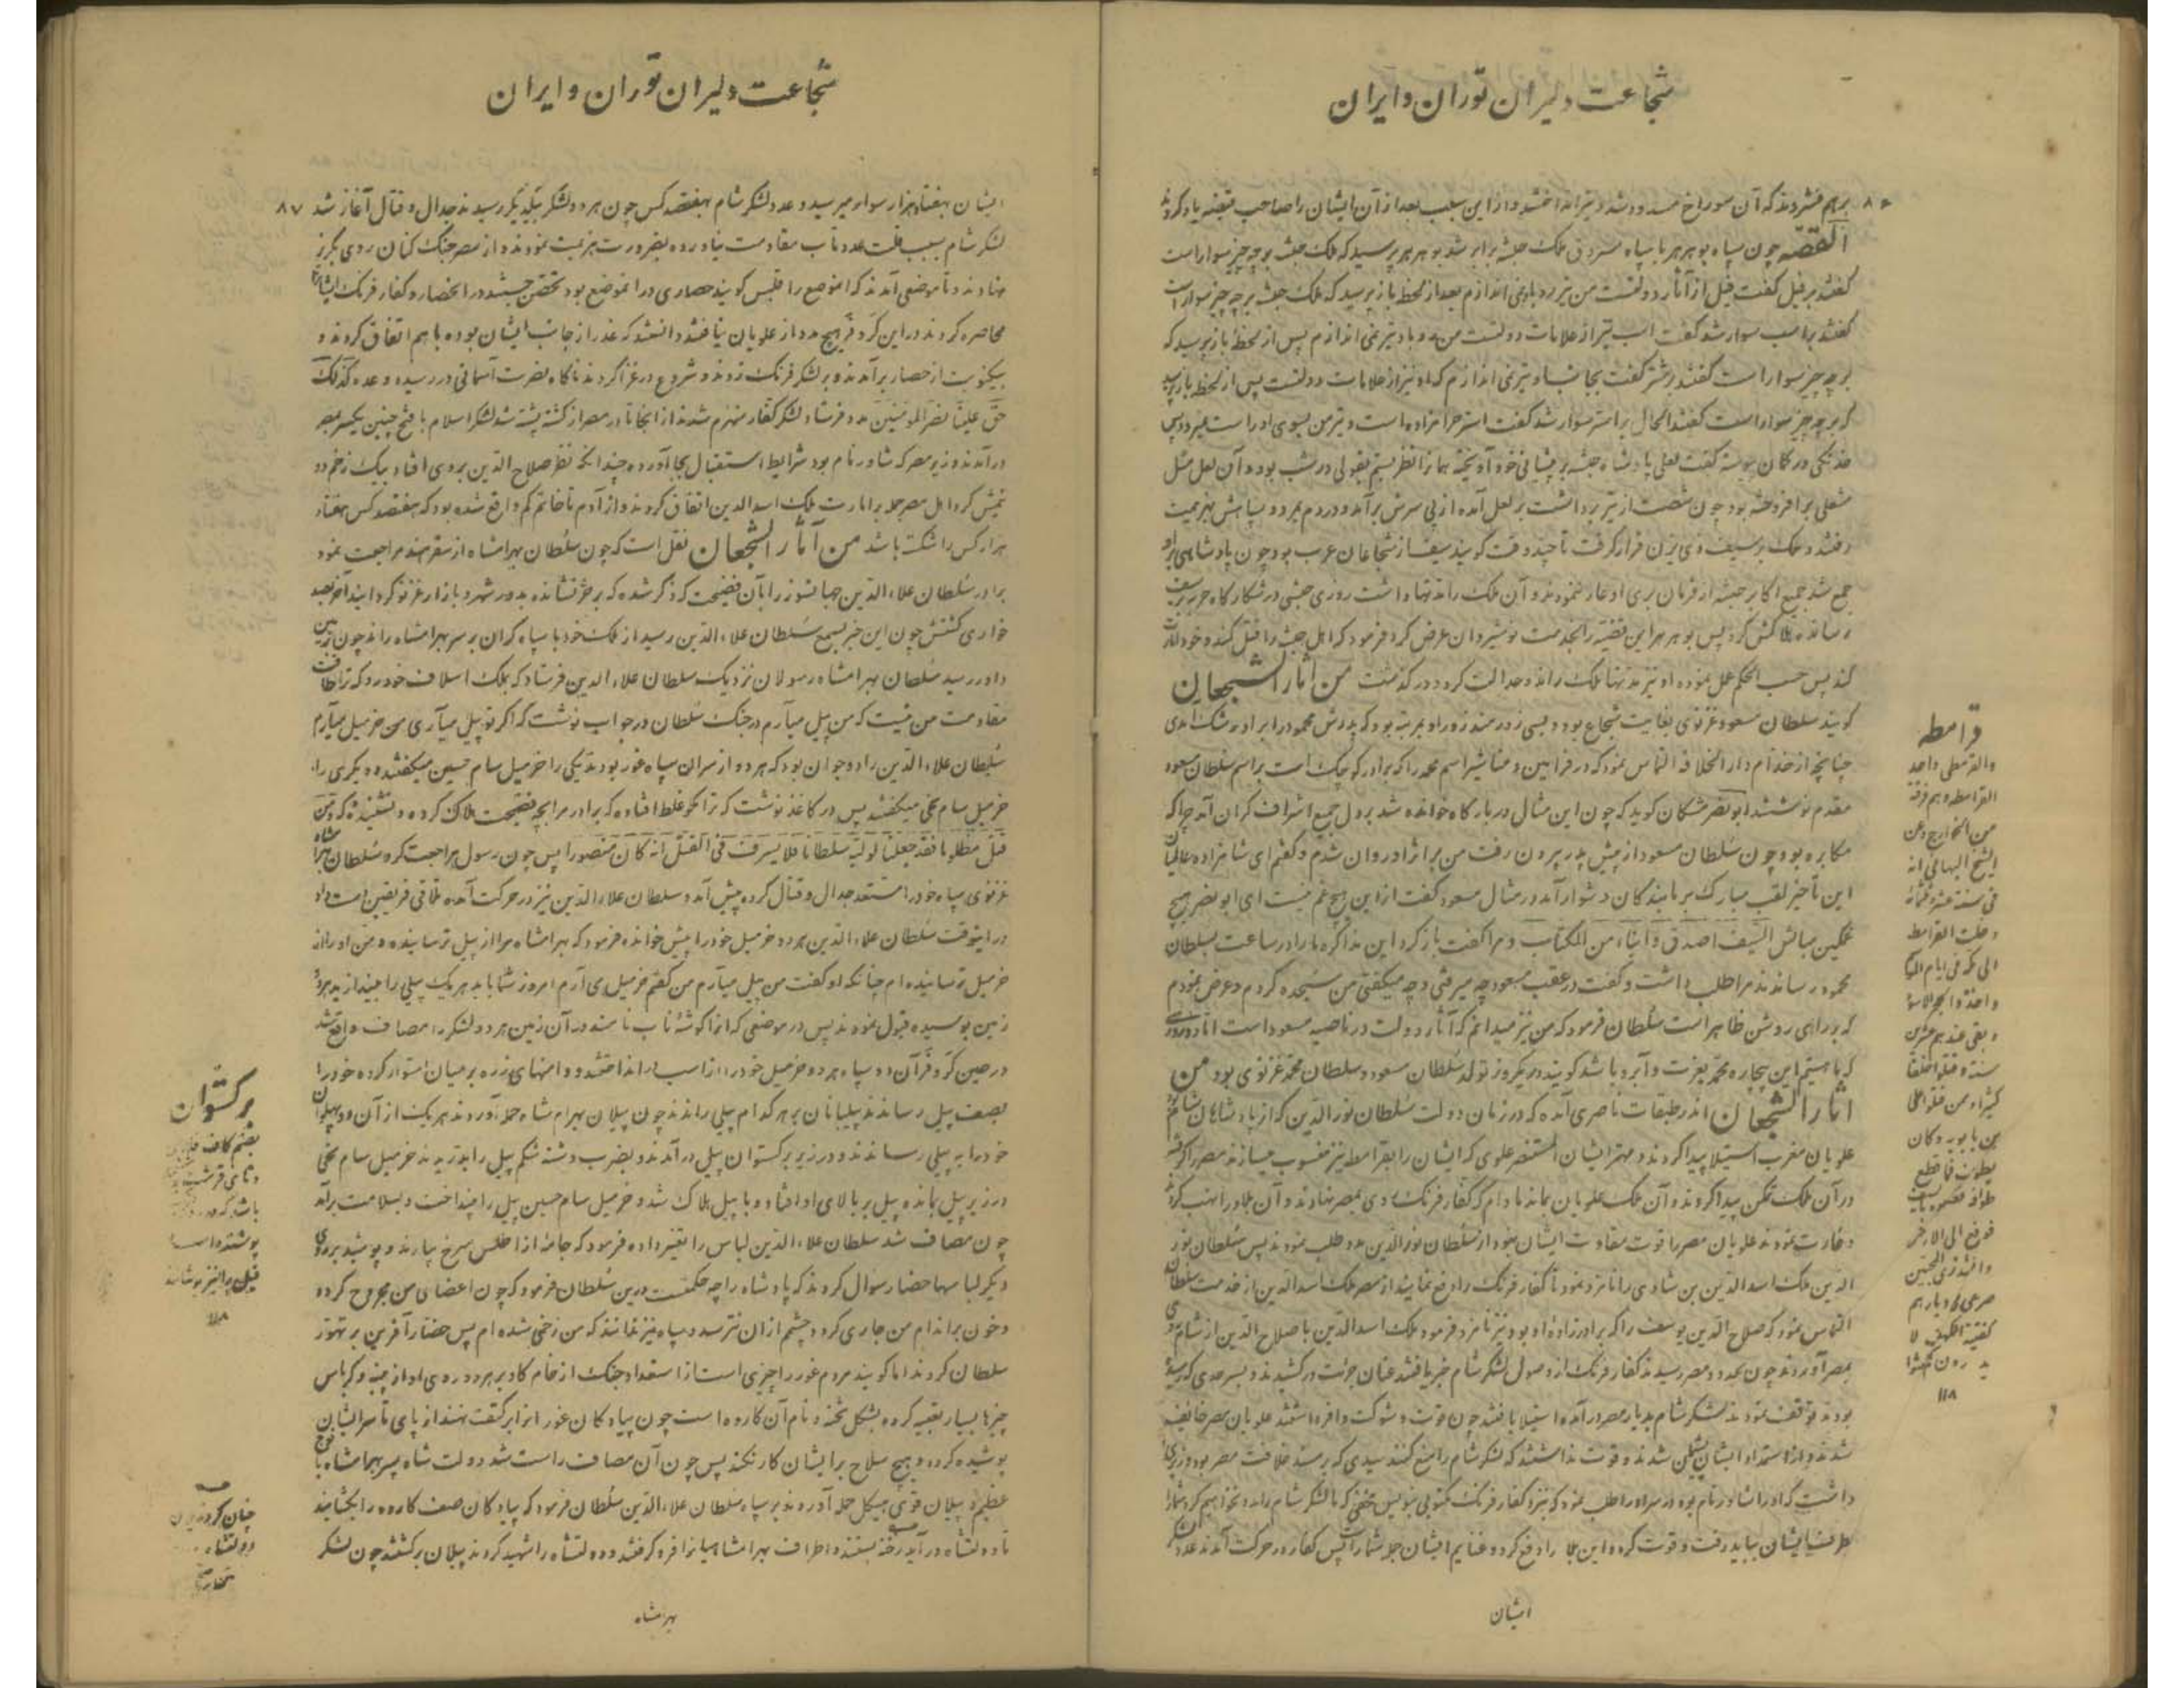 شجاعت دلیران توران و ایران
برهم فشردند که آن سوراخ مسدود شد و تیر انداختند و از این سبب بعد از آن ایشان را صاحب قبضه یاد کردند
القصه چون سپاه بوهرهر با سپاه مسروق ملک حبشه برابر شد بوهرهر پرسید که ملک حبشه بر چه چیز سوار است
گفتند بر فیل گفت فیل از آثار دولتست من تیر بدو نمی اندازم بعد از لحظه باز پرسید که ملک حبشه بر چه چیز سوار است
گفتند بر اسب سوار شد گفت اسب نیز از علامات دولتست من بدو تیر نمی اندازم پس از لحظه باز پرسید که
بر چه چیز سوار است گفتند بر شتر گفت بجانب او تیر نمی اندازم که او نیز از علامات دولتست پس از لحظه باز پرسید
که بر چه چیز سوار است گفتند الحال بر استر سوار شد گفت استر حرامزاده است و تیر من بسوی او راست میرود پس
خدنگی در کمان پیوسته گفت لعلی پادشاه حبشه بر پیشانی خود آویخته
مشعلی برافروخته بود چون شصت از تیر برداشت بر لعل آمده از پی سرش برآمد و در دم بمرد و سپاهش بهزیمت
رفتند و ملک بر سیف ذی یزن قرار گرفت تا چند وقت گویند سیف از شجاعان عرب بود چون پادشاهی بر او
جمع شد جمیع اکابر حبشه از فرمان بری او عار ننمودند و آن ملک را تنها داشت روزی حبشی در شکارگاه حربه بر سیف
رسانده هلاکش کرد پس بوهرهر این قضیه را بخدمت نوشیروان عرض کرد فرمود که اهل حبشه را قتل کند و خود
کند پس حسب الحکم عمل نموده او نیز مدتها ملک راند و عدالت کرد و درگذشت من آثار الشجعان
گویند سلطان مسعود غزنوی بغایت شجاع بود و بسی زورمند زور او بمرتبه بود که پدرش محمود را بر او رشک آمدی
چنانچه از خدام دار الخلافه التماس نمود که در فرامین و مناشیر اسم محمد را که برادر کوچک است بر اسم سلطان مسعود
مقدم نوشتند ابونصر مشکان گوید که چون این مثال در بارگاه خوانده شد بر دل جمیع اشراف گران آمد چرا که
مکابره بود چون سلطان مسعود از پیش پدر بیرون رفت من بر اثر او روان شدم و گفتم ای شاهزاده عالمیان
این تأخیر لقب مبارک بر بندگان دشوار آمد در مثال مسعود گفت از این هیچ غم نیست ای ابونصر هیچ
غمگین مباش السیف اصدق انباء من الکتاب و مرا گفت باز گرد این مذاکره ما را در ساعت بسلطان
محمود رساندند مرا طلب داشت و گفت در عقب مسعود چه میرفتی و چه میگفتی من سنجیده کردم و عرض نمودم
که بر رای روشن ظاهر است سلطان فرمود که من نیز میدانم که آثار دولت در ناصیه مسعود است
که ما هستیم این بیچاره محمد بعزت و آبرو باشد گویند در یکروز تولد سلطان مسعود و سلطان محمد غزنوی بود من
آثار الشجعان اندر طبقات ناصری آمده که در زمان دولت سلطان نور الدین که از پادشاهان شام بود
علویان مغرب استیلا پیدا کردند و مهتر ایشان المستنصر علوی که ایشان را بقرامطه نیز منسوب میسازند مصر را گرفته
در آن ملک تمکن پیدا کردند و آن ملک علویان بماند مادام که کفار فرنگ روی بمصر نهادند و آن بلاد را نهب کرده
و غارت نمودند علویان مصر را قوت مقاومت ایشان نبود از سلطان نور الدین مدد طلب نمودند پس سلطان نور
الدین ملک اسد الدین بن شادی را نامزد نمود تا کفار فرنگ را دفع نماید از مصر ملک اسد الدین از خدمت سلطان
التماس نمود که صلاح الدین یوسف را که برادرزاده او بود نیز نامزد فرمود ملک اسد الدین با صلاح الدین از شام روی
بمصر آوردند چون بحدود مصر رسیدند کفار فرنگ از وصول لشکر شام خبر یافتند عنان جرئت در کشیدند و بسرحدی که رسیده
بودند توقف نمودند لشکر شام بدیار مصر درآمده استیلا یافتند چون قوت و شوکت وافر داشتند علویان مصر خائف
شدند و از استمداد ایشان پشیمان شدند و قوت نداشتند که لشکر شام را منع کنند سیدی که بر مسند خلافت مصر بود وزیری
داشت که او را شاور نام بود در سر او را طلب نمود که بنزد کفار فرنگ مکتوبی بنویس مخفی که ما لشکر شام را مدد نخواهیم کرد شما را
طرف ایشان بباید رفت و قوت کرده این بلا را دفع کرد و غنایم ایشان جمله شما راست پس کفار در حرکت آمدند عدد لشکر
ایشان
قرامطه
والقرمطی واحد
القرامطه و هم فرقة
من الخوارج و عن
الشیخ البهائی انه
فی سنة عشر و ثلثمائة
دخلت القرامطة
الی مکة فی ایام الموسم
و اخذوا الحجر الاسود
و بقی عندهم عشرین
سنة و قتلوا خلقا
کثیرا و ممن قتلوا علی
بن بابویه و کان
یطوف فما قطع
طوافه فضربوه بالسیف
فوقع الی الارض
و انشد تری المحبین
صرعی فی دیارهم
کفتیة الکهف لا
یدرون کم لبثوا
۱۱۸
شجاعت دلیران توران و ایران
۸۷
ایشان بهفتاد هزار سوار میرسید و عدد لشکر شام بهفتصد کس چون هر دو لشکر بیکدیگر رسیدند جدال و قتال آغاز شد
لشکر شام بسبب قلت عدد تاب مقاومت نیاورده بضرورت هزیمت نمودند و از مصر جنگ کنان روی بگریز
نهادند و تا موضعی آمدند که آنموضع را قلبس گویند حصاری در آنموضع بود تحصن جستند در آنحصار و کفار فرنگ ایشان را
محاصره کردند در این کر و فر هیچ مدد از علویان نیافتند دانستند که غدر از جانب ایشان بوده با هم اتفاق کردند و
بیکنوبت از حصار برآمدند و بر لشکر فرنگ زدند و شروع در غزا کردند ناگاه نصرت آسمانی در رسید و وعده کذلک
حق علینا نصر المومنین مدد فرستاد لشکر کفار منهزم شدند از آنجا تا در مصر از کشته پشته شد لشکر اسلام با فتح چنین یکسر بمصر
درآمدند وزیر مصر که شاور نام بود شرایط استقبال بجا آورده چندانکه نظر صلاح الدین بر وی افتاد بیک زخم دو
نیمش کرد اهل مصر جمله بر امارت ملک اسد الدین اتفاق کردند و از آدم تا خاتم کم واقع شده بود که هفتصد کس هفتاد
هزار کس را شکسته باشد من آثار الشجعان نقل است که چون سلطان بهرامشاه از سفر هند مراجعت نمود
برادر سلطان علاء الدین جهانسوز را بآن فضیحت که ذکر شده که بر خر نشانده بدور شهر و بازار غزنو گردانید آخر بصد
خواری کشتش چون این خبر بسمع سلطان علاء الدین رسید از ملک خود با سپاه گران بر سر بهرامشاه راند چون بزمین
داور رسید سلطان بهرامشاه رسولان نزدیک سلطان علاء الدین فرستاد که بملک اسلاف خود رو که ترا طاقت
مقاومت من نیست که من پیل میآرم در جنگ سلطان در جواب نوشت که اگر تو پیل میآری من خرمیل میآرم
سلطان علاء الدین را دو جوان بود که هر دو از سران سپاه غور بودند یکی را خرمیل سام حسین میگفتند و دیگری را
خرمیل سام بخی میگفتند پس در کاغذ نوشت که ترا مگو غلط افتاده که برادر مرا بچه فضیحت هلاک کرده و نشنیده که و من
قتل مظلوما فقد جعلنا لولیه سلطانا فلا یسرف فی القتل انه کان منصورا پس چون رسول مراجعت کرد سلطان بهرامشاه
غزنوی سپاه خود را مستعد جدال و قتال کرده پیش آمد و سلطان علاء الدین نیز در حرکت آمده تلاقی فریقین دست داد
در اینوقت سلطان علاء الدین هر دو خرمیل خود را پیش خوانده فرمود که بهرامشاه مرا از پیل ترسانیده و من او را از
خرمیل ترسانیده ام چنانکه او گفت من پیل میآرم من گفتم خرمیل می آرم امروز شما باید هر یک پیلی را بیندازید هر دو
زمین بوسیده قبول نمودند پس در موضعی که آنرا گوشه ناب نامند در آن زمین هر دو لشکر را مصاف واقع شد
در حین کر و فر آن دو سپاه هر دو خرمیل خود را از اسب انداختند و دامنهای زره بر میان استوار کرده خود را
بصف پیل رساندند پیلبانان بر هر کدام پیلی راندند چون پیلان بهرام شاه حمله آوردند هر یک از آن دو پهلوان
خود را به پیلی رساندند و در زیر برگستوان پیل در آمدند و بضرب دشنه شکم پیل را بدریدند خرمیل سام بخی
در زیر پیل بمانده پیل بر بالای او افتاد و با پیل هلاک شد و خرمیل سام حسین پیل را بینداخت و بسلامت برآمد
چون مصاف شد سلطان علاء الدین لباس را تغییر داده فرمود که جامه از اطلس سرخ بیارند و پوشید بر روی
دیگر لباسها حضار سوال کردند که پادشاه را چه حکمتست درین سلطان فرمود که چون اعضای من مجروح گردد
و خون بر اندام من جاری گردد چشم از آن نترسد و سپاه نیز ندانند که من زخمی شده ام پس حضار آفرین بر تهور
سلطان کردند اما گویند مردم غور را چیزی است از استعداد جنگ از خام گاو بر هر دو روی او از پنبه و کرباس
چیزها بسیار تعبیه کرده بشکل تخته و نام آن کاروه است چون پیادگان غور آنرا بر کتف نهند از پای تا سر ایشان
پوشیده گردد و هیچ سلاح بر ایشان کار نکند پس چون آن مصاف راست شد دولت شاه پسر بهرامشاه با فوج
عظیم و پیلان قوی هیکل حمله آوردند بر سپاه سلطان علاء الدین سلطان فرمود که پیادگان صف کاروه را بگشایند
تا دولتشاه در آید رخنه بستند و اطراف بهرامشاهیانرا فرو گرفتند و دولتشاه را شهید کردند پیلان برگشتند چون لشکر
بهرامشاه
برگستوان
بضم کاف فارسی
باشد که در
پوشند و اسب
فیل را نیز پوشانند
۱۱۸
چنان کردند چون
دولتشاه